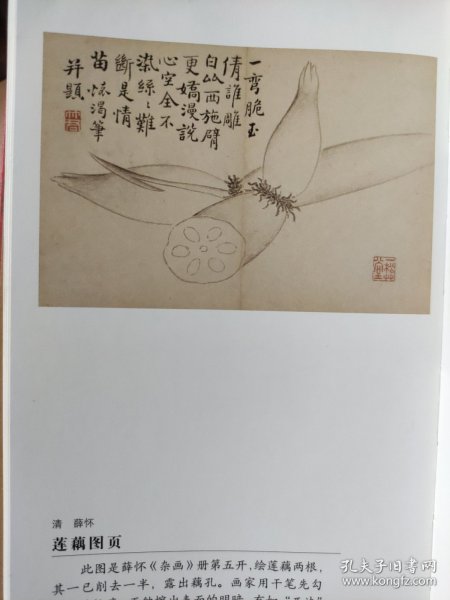 一彎脆玉
倩誰雕
白似西施臂
更嬌漫說
心空全不
染絲〻難
斷是情
苗 懷渴筆
并題
清 薛怀
莲藕图页
此图是薛怀《杂画》册第五开，绘莲藕两根，
其一已削去一半，露出藕孔。画家用干笔先勾
孔夫子旧书网